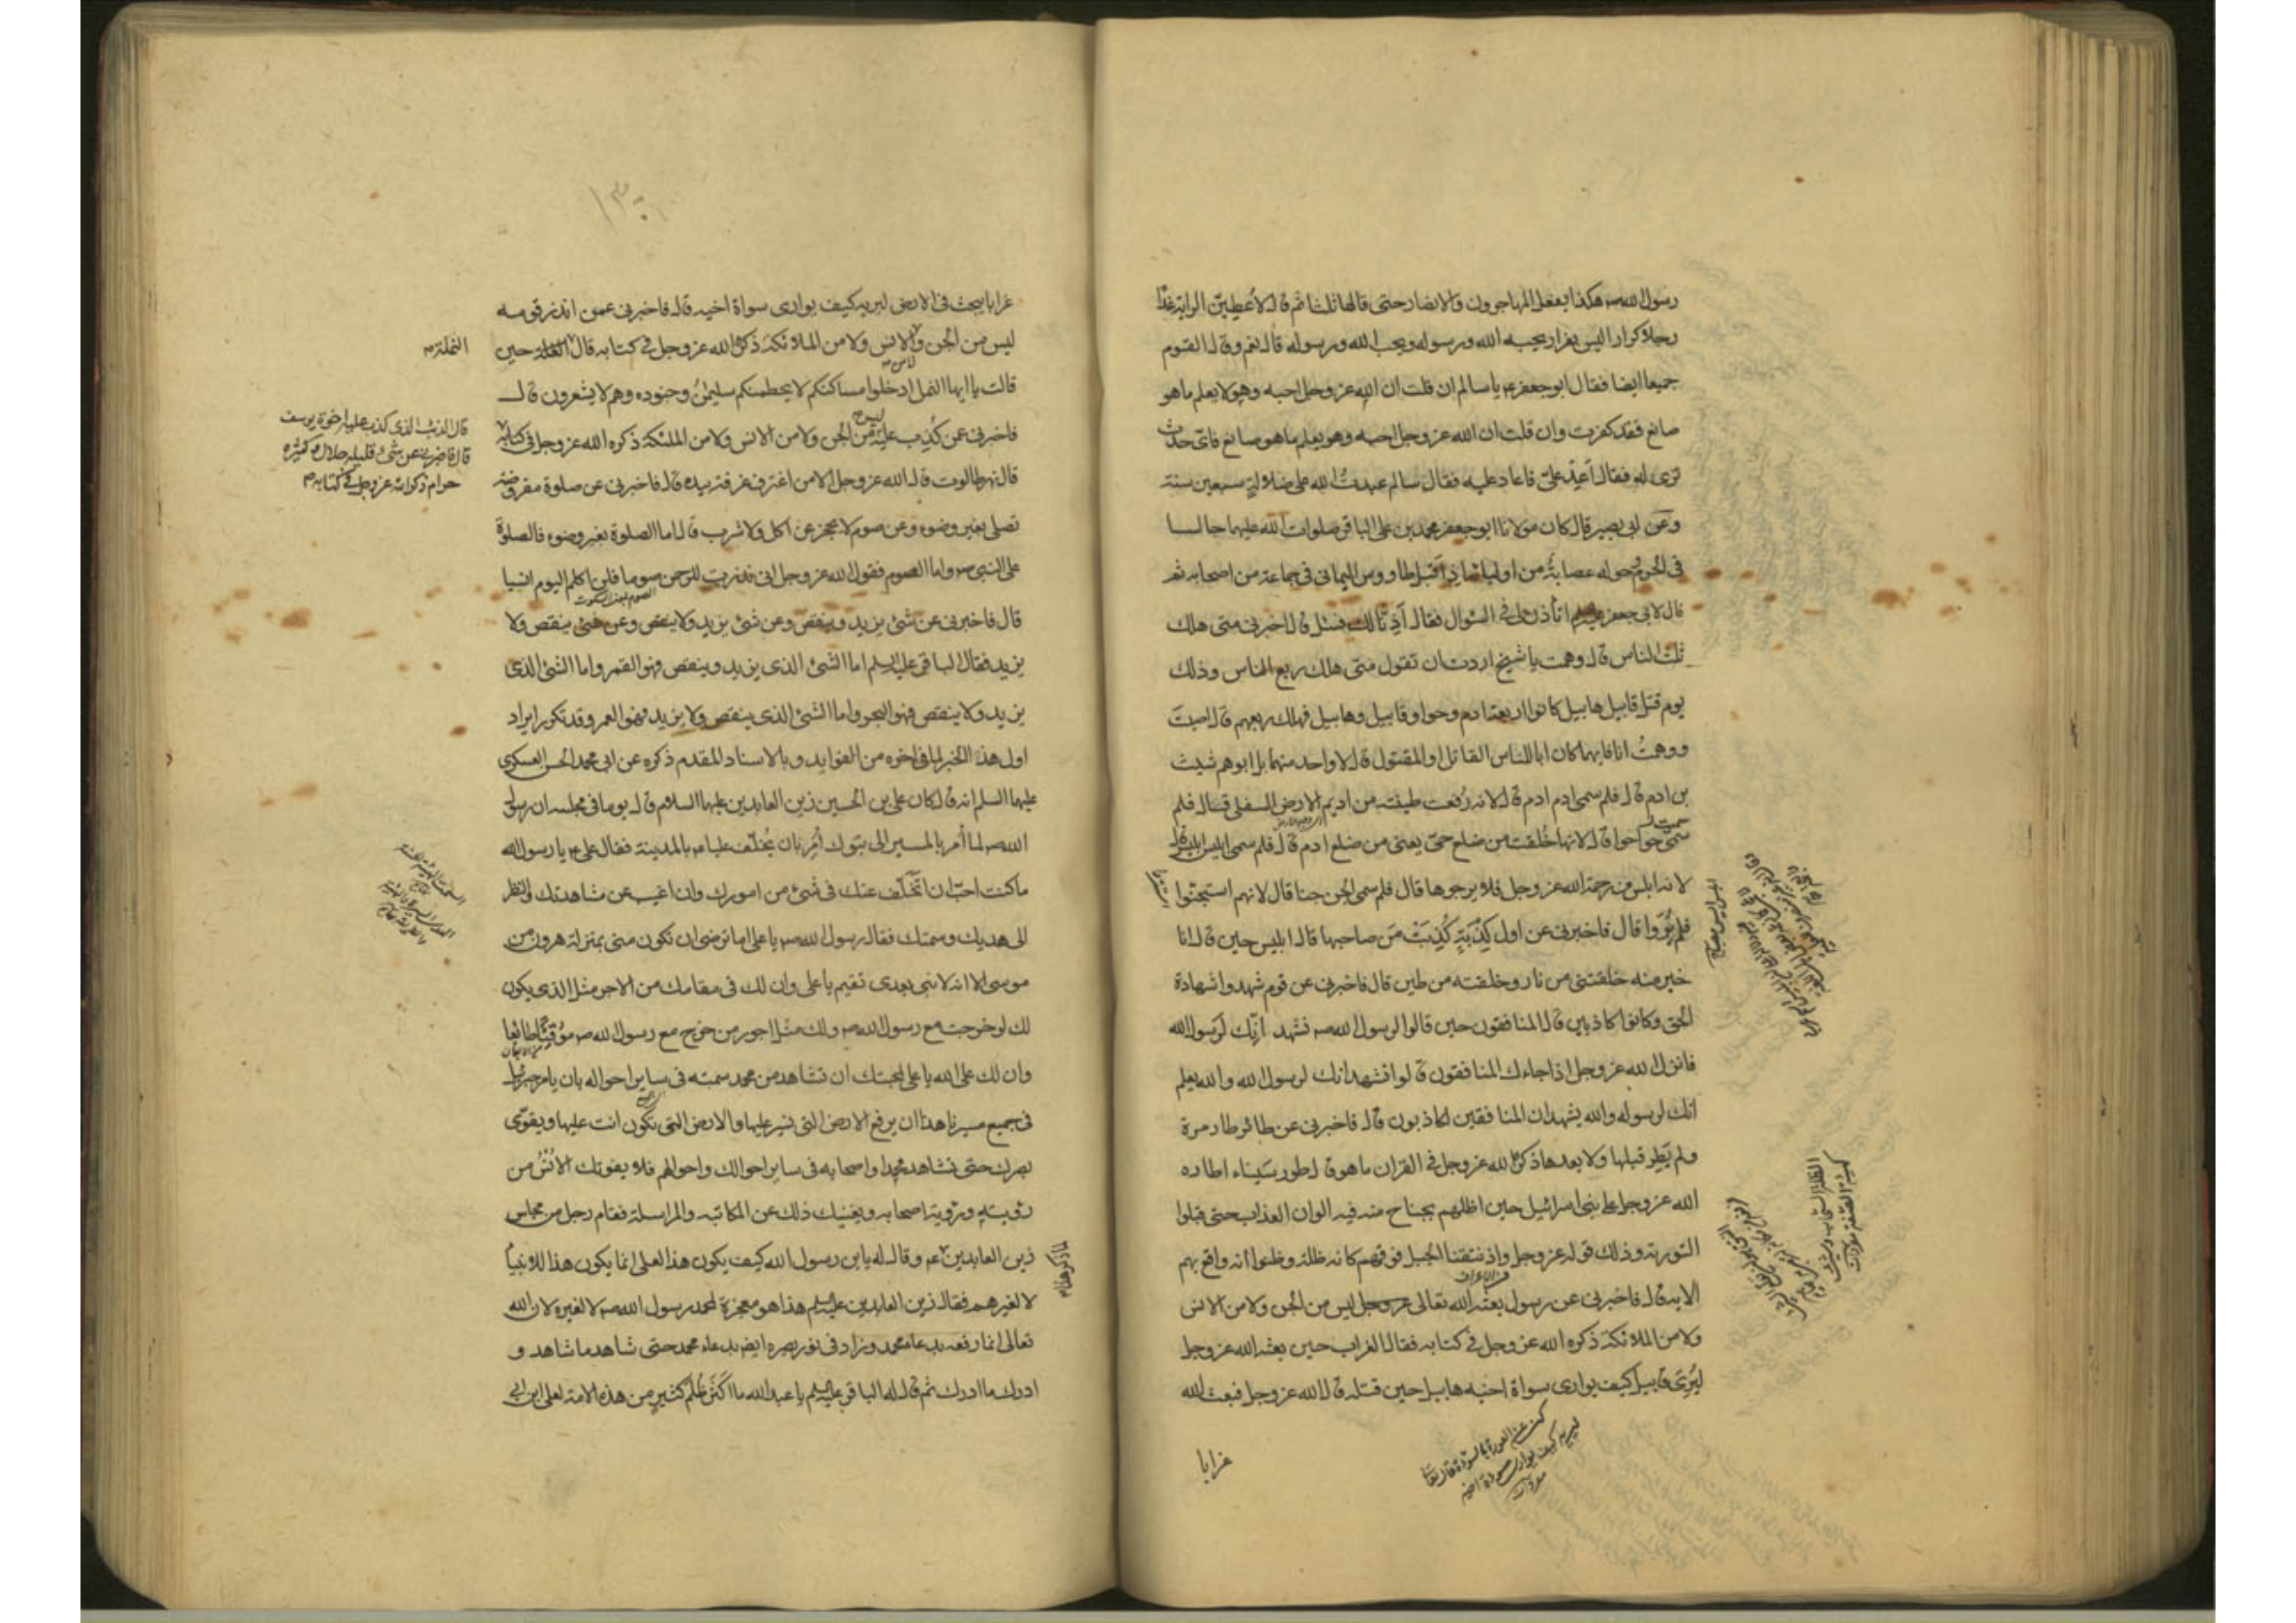 رسول الله صه هكذا يفعل المهاجرون والانصار حتى قالها ثلثا ثم قال لاعطين الراية غدا
رجلا كرارا ليس بفرار يحبه الله ورسوله ويحب الله ورسوله قال نعم وقال القوم
جميعا ايضا فقال ابو جعفر ع يا سالم ان قلت ان الله عز وجل احبه وهو لا يعلم ما هو
صانع فقد كفرت وان قلت ان الله عز وجل احبه وهو يعلم ما هو صانع فاى حدث
ترى له فقال اعد على فاعاد عليه فقال سالم عبدت الله على ضلالة سبعين سنة
وعن ابى بصير قال كان مولانا ابو جعفر محمد بن على الباقر صلوات الله عليهما جالسا
فى الحرم وحوله عصابة من اوليائه اذ اقبل طاووس اليمانى فى جماعة من اصحابه ثم
قال لابى جعفر عليه السلم اتأذن لى فى السؤال فقال اذنا لك فسل قال اخبرنى متى هلك
ثلث الناس قال وهمت يا شيخ اردت ان تقول متى هلك ربع الناس وذلك
يوم قتل قابيل هابيل كانوا اربعة ادم وحوا وقابيل وهابيل فهلك ربعهم قال اصبت
ووهمت انا فايهما كان ابا للناس القاتل او المقتول قال لا واحد منهما بل ابوهم شيث
بن ادم قال فلم سمى ادم ادم قال لانه رفعت طينته من اديم الارض السفلى قال فلم
سميت حوا حوا قال لانها خلقت من ضلع حى يعنى من ضلع ادم قال فلم سمى ابليس ابليس قال
لانه ابلس من رحمة الله عز وجل فلا يرجوها قال فلم سمى الجن جنا قال لانهم استجنوا
فلم يروا قال فاخبرنى عن اول كذبة كذبت من صاحبها قال ابليس حين قال انا
خير منه خلقتنى من نار وخلقته من طين قال فاخبرنى عن قوم شهدوا شهادة
الحق وكانوا كاذبين قال المنافقون حين قالوا لرسول الله صه نشهد انك لرسول الله
فانزل الله عز وجل اذا جاءك المنافقون قالوا نشهد انك لرسول الله والله يعلم
انك لرسوله والله يشهد ان المنافقين لكاذبون قال فاخبرنى عن طائر طار مرة
ولم يطر قبلها ولا بعدها ذكره الله عز وجل فى القران ما هو قال طور سيناء اطاره
الله عز وجل على بنى اسرائيل حين اظلهم بجناح منه فيه الوان العذاب حتى قبلوا
التورية وذلك قوله عز وجل واذ نتقنا الجبل فوقهم كانه ظلة وظنوا انه واقع بهم
الاية قال فاخبرنى عن رسول بعثه الله تعالى عز وجل ليس من الجن ولا من الانس
ولا من الملائكة ذكره الله عز وجل فى كتابه فقال الغراب حين بعثه الله عز وجل
ليرى قابيل كيف يوارى سواة اخيه هابيل حين قتله قال الله عز وجل فبعث الله
غرابا
غرابا يبحث فى الارض ليريه كيف يوارى سواة اخيه قال فاخبرنى عمن انذر قومه
ليس من الجن ولا من الانس ولا من الملائكة ذكره الله عز وجل فى كتابه قال النملة حين
النملة صح
قالت يا ايها النمل ادخلوا مساكنكم لا يحطمنكم سليمن وجنوده وهم لا يشعرون قال
فاخبرنى عمن كذب عليه ليس من الجن ولا من الانس ولا من الملئكة ذكره الله عز وجل فى كتابه
قال الذئب الذى كذب عليه اخوة يوسف
قال فاخبرنى عن شىء قليله حلال وكثيره
حرام ذكره الله عز وجل فى كتابه صح
قال نهر طالوت قال الله عز وجل الا من اغترف غرفة بيده قال فاخبرنى عن صلوة مفروضة
تصلى بغير وضوء وعن صوم لا يحجز عن اكل ولا شرب قال اما الصلوة بغير وضوء فالصلوة
على النبى صه واما الصوم فقول الله عز وجل انى نذرت للرحمن صوما فلن اكلم اليوم انسيا
قال فاخبرنى عن شىء يزيد وينقص وعن شىء يزيد ولا ينقص وعن شىء ينقص ولا
يزيد فقال الباقر عليه السلم اما الشىء الذى يزيد وينقص فهو القمر واما الشىء الذى
يزيد ولا ينقص فهو البحر واما الشىء الذى ينقص ولا يزيد فهو العمر وقد تكرر ايراد
اول هذا الخبر لما فى اخره من الفوايد وبالاسناد المقدم ذكره عن ابى محمد الحسن العسكرى
عليهما السلم انه قال كان على بن الحسين زين العابدين عليهما السلام قال يوما فى مجلسه ان رسول
الله صه لما أمر بالمسير الى تبوك أمر بان يخلف عليا ع بالمدينة فقال على ع يا رسول الله
ما كنت احب ان اتخلف عنك فى شىء من امورك وان اغيب عن مشاهدتك والنظر
الى هديك وسمتك فقال رسول الله صه يا على اما ترضى ان تكون منى بمنزلة هرون من
موسى الا انه لا نبى بعدى تقيم يا على وان لك فى مقامك من الاجر مثل الذى يكون
لك لو خرجت مع رسول الله صه ولك مثل اجور من خرج مع رسول الله صه موقنا طائعا
وان لك على الله يا على لمحبتك ان تشاهد من محمد سمته فى ساير احواله بان يامر جبرئيل
فى جميع مسيرنا هذا ان يرفع الارض التى نسير عليها والارض التى تكون انت عليها ويقوى
بصرك حتى تشاهد محمدا واصحابه فى ساير احوالك واحوالهم فلا يفوتك الانس من
رؤيته ورؤية اصحابه ويغنيك ذلك عن المكاتبة والمراسلة فقام رجل من مجلس
زين العابدين ع وقال له يا بن رسول الله كيف يكون هذا لعلى انما يكون هذا للانبياء
لا لغيرهم فقال زين العابدين عليه السلم هذا هو معجزة لمحمد رسول الله صه لا لغيره لان الله
تعالى انما رفعه بدعاء محمد وزاد فى نور بصره ايضا بدعاء محمد حتى شاهد ما شاهد و
ادرك ما ادرك ثم قال له الباقر عليه السلم يا عبد الله ما اكثر ظلم كثير من هذه الامة لعلى ابن ابى